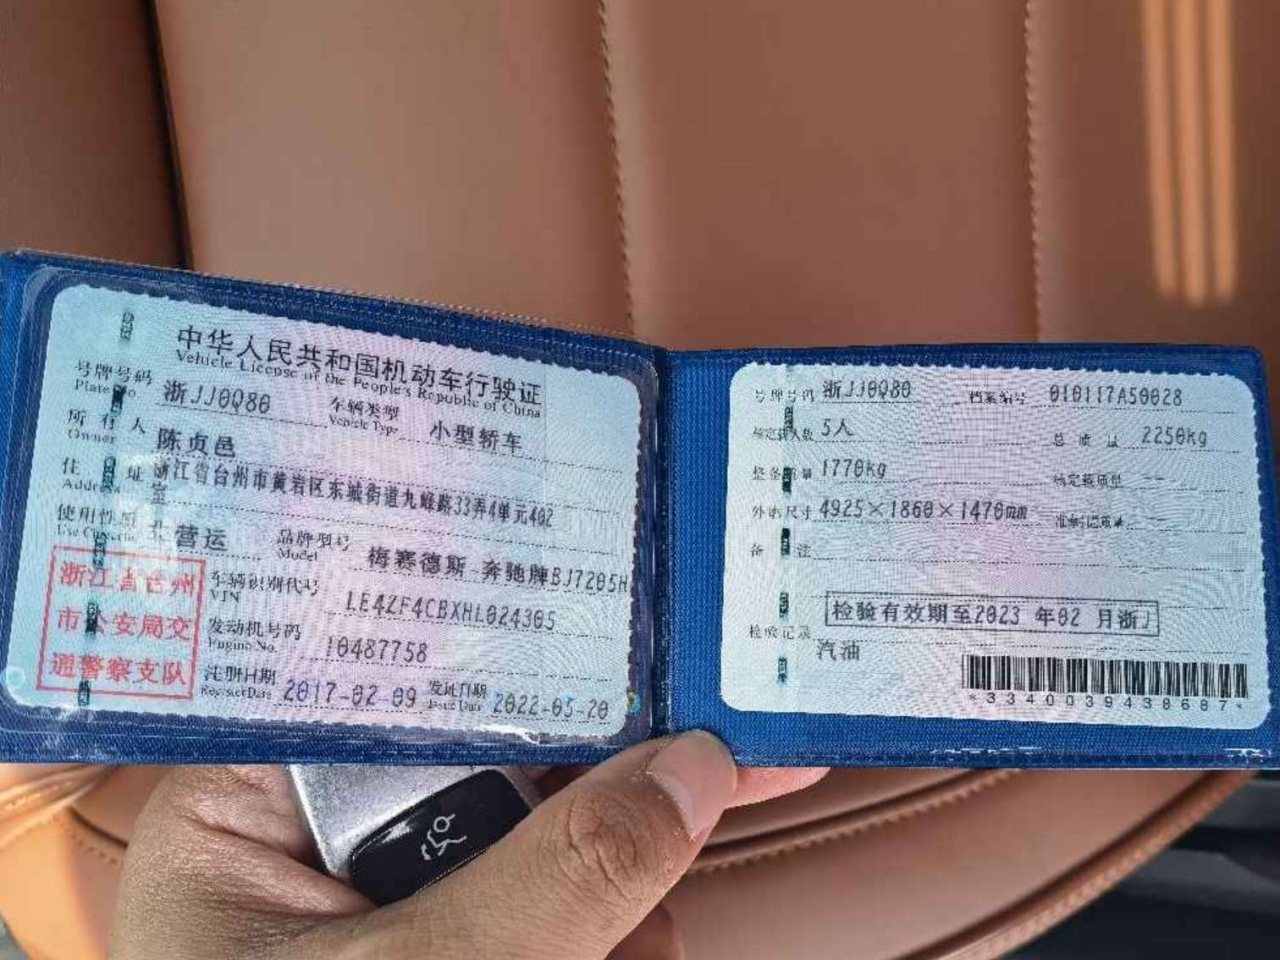 中华人民共和国机动车行驶证
Vehicle License of the People's Republic of China
号牌号码 浙JJ0Q80 车辆类型 小型轿车
Plate No. Vehicle Type
所有人 陈贞邑
Owner
住址 浙江省台州市黄岩区东城街道九峰路33弄4单元402
Address 室
使用性质 非营运 品牌型号 梅赛德斯 奔驰牌BJ7205H
Model
浙江省台州
市公安局交
通警察支队
车辆识别代号 LE4ZF4CBXHL024305
VIN
发动机号码 10487758
Engine No.
注册日期 2017-02-09 发证日期 2022-05-20
Register Date Issue Date
号牌号码 浙JJ0Q80 档案编号 010117A50028
核定载人数 5人 总质量 2250kg
整备质量 1770kg 核定载质量 --
外廓尺寸 4925×1860×1470mm 准牵引总质量 --
备注
检验有效期至2023 年02 月浙J
检验记录
汽油
*3340039438687*